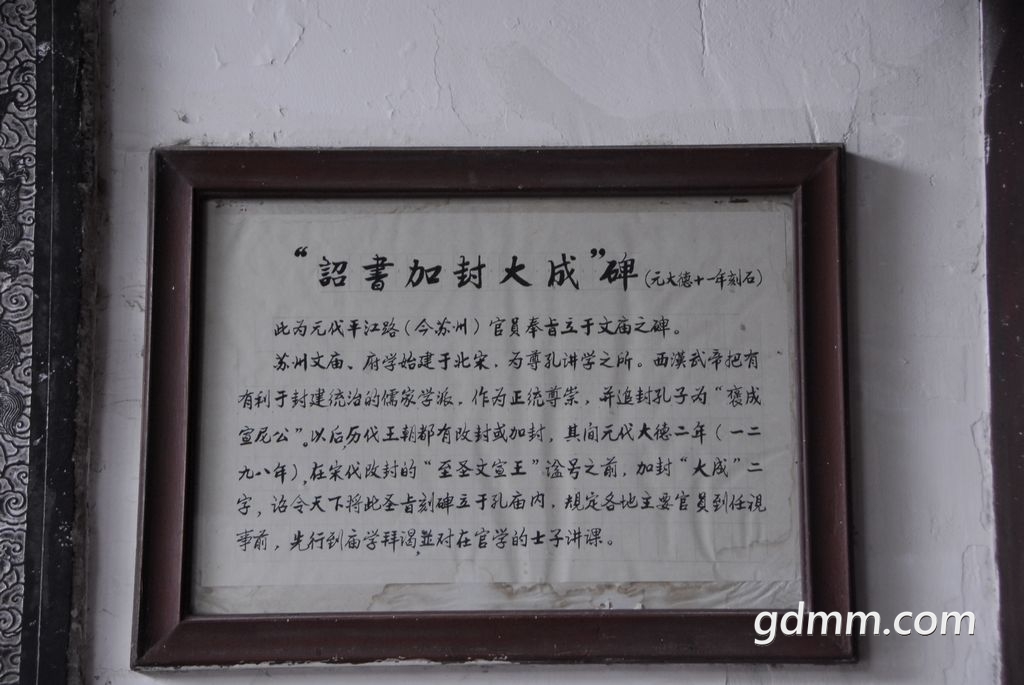 “詔書加封大成”碑(元大德十一年刻石)
此为元代平江路(今苏州)官員奉旨立于文庙之碑。
苏州文庙、府学始建于北宋,为尊孔讲学之所。西漢武帝把有
有利于封建统治的儒家学派,作为正统尊崇,并追封孔子为“褒成
宣尼公”。以后,历代王朝都有改封或加封,其间元代大德二年(一二
九八年),在宋代改封的“至圣文宣王”谥号之前,加封“大成”二
字,诏令天下将此圣旨刻碑立于孔庙内,规定各地主要官員到任視
事前,先行到庙学拜谒,並对在官学的士子讲课。
gdmm.com